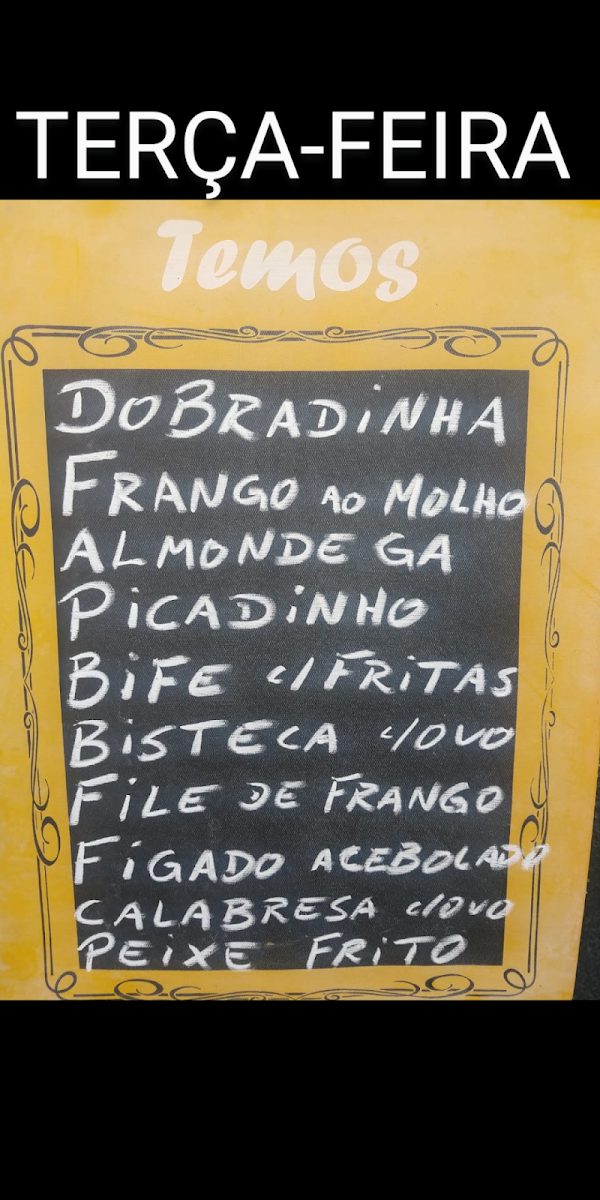 TERÇA-FEIRA
Temos
DOBRADiNHA
FRANGO AO MOLHO
ALMONDEGA
PiCADiNHO
BiFE c/FRiTAS
BiSTECA c/OVO
FiLE DE FRANGO
FiGADO ACEBOLADO
CALABRESA c/OVO
PEiXE FRiTO